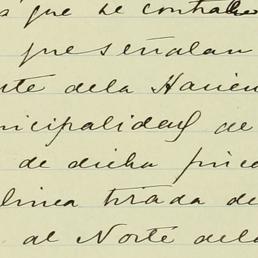 que se contrale
que señalan
te dela Hacien
nicipalidad de
de dicha finca
linea tirada de
al Norte dela